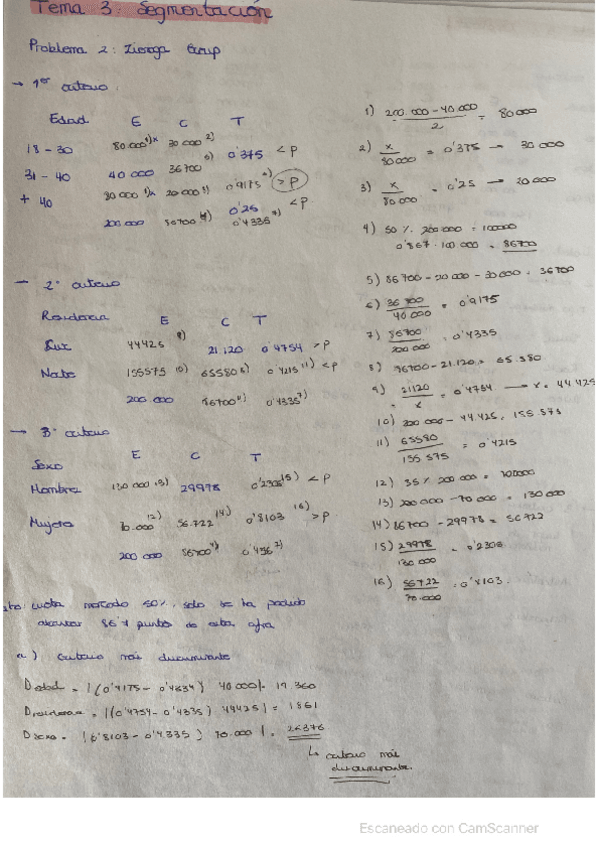 Tema 3: Segmentación
Problema 2: Zieroga Group
→ 1er criterio:
Edad E C T
18 - 30 80.000 1)x 30.000 2) 0'375 < P
31 - 40 40 000 36700 5) 0'9175 6) > P
+ 40 80000 1)x 20000 3) 0'25 < P
200.000 86700 4) 0'4335 7)
1) 200.000 - 40.000 / 2 = 80000
2) x / 80000 = 0'375 → 30000
3) x / 80.000 = 0'25 → 20000
4) 50 %. 200000 = 100000
0'867 · 100 000 = 86700
5) 86700 - 20 000 - 30000 = 36700
6) 36700 / 40.000 = 0'9175
7) 86700 / 200.000 = 0'4335
8) 86700 - 21.120 = 65.580
9) 21120 / x = 0'4754 → x = 44425
10) 200.000 - 44.425 = 155.575
11) 65580 / 155 575 = 0'4215
12) 35 % 200000 = 70000
13) 200.000 - 70 000 = 130000
14) 86700 - 29978 = 56722
15) 29978 / 130.000 = 0'2306
16) 56722 / 70.000 = 0'8103.
— 2º criterio
Residencia E C T
Sur 44425 9) 21.120 0'4754 > P
Norte 155575 10) 65580 8) 0'4215 11) < P
200.000 86700 4) 0'4335 7)
→ 3º criterio
Sexo E C T
Hombre 130 000 13) 29978 0'2306 15) < P
Mujeres 70.000 12) 56.722 14) 0'8103 16) > P
200 000 86700 4)
cuota mercado 50%. solo se ha podido
alcanzar 86'7 puntos de esta cifra
a) Criterio más discriminante
D edad = |(0'9175 - 0'4334) 40000| = 19 360
D residencia = |(0'4754 - 0'4335) 44425| = 1861
D sexo = |(0'8103 - 0'4335) 70.000| = 26376
↳ criterio más
discriminante.
Escaneado con CamScanner